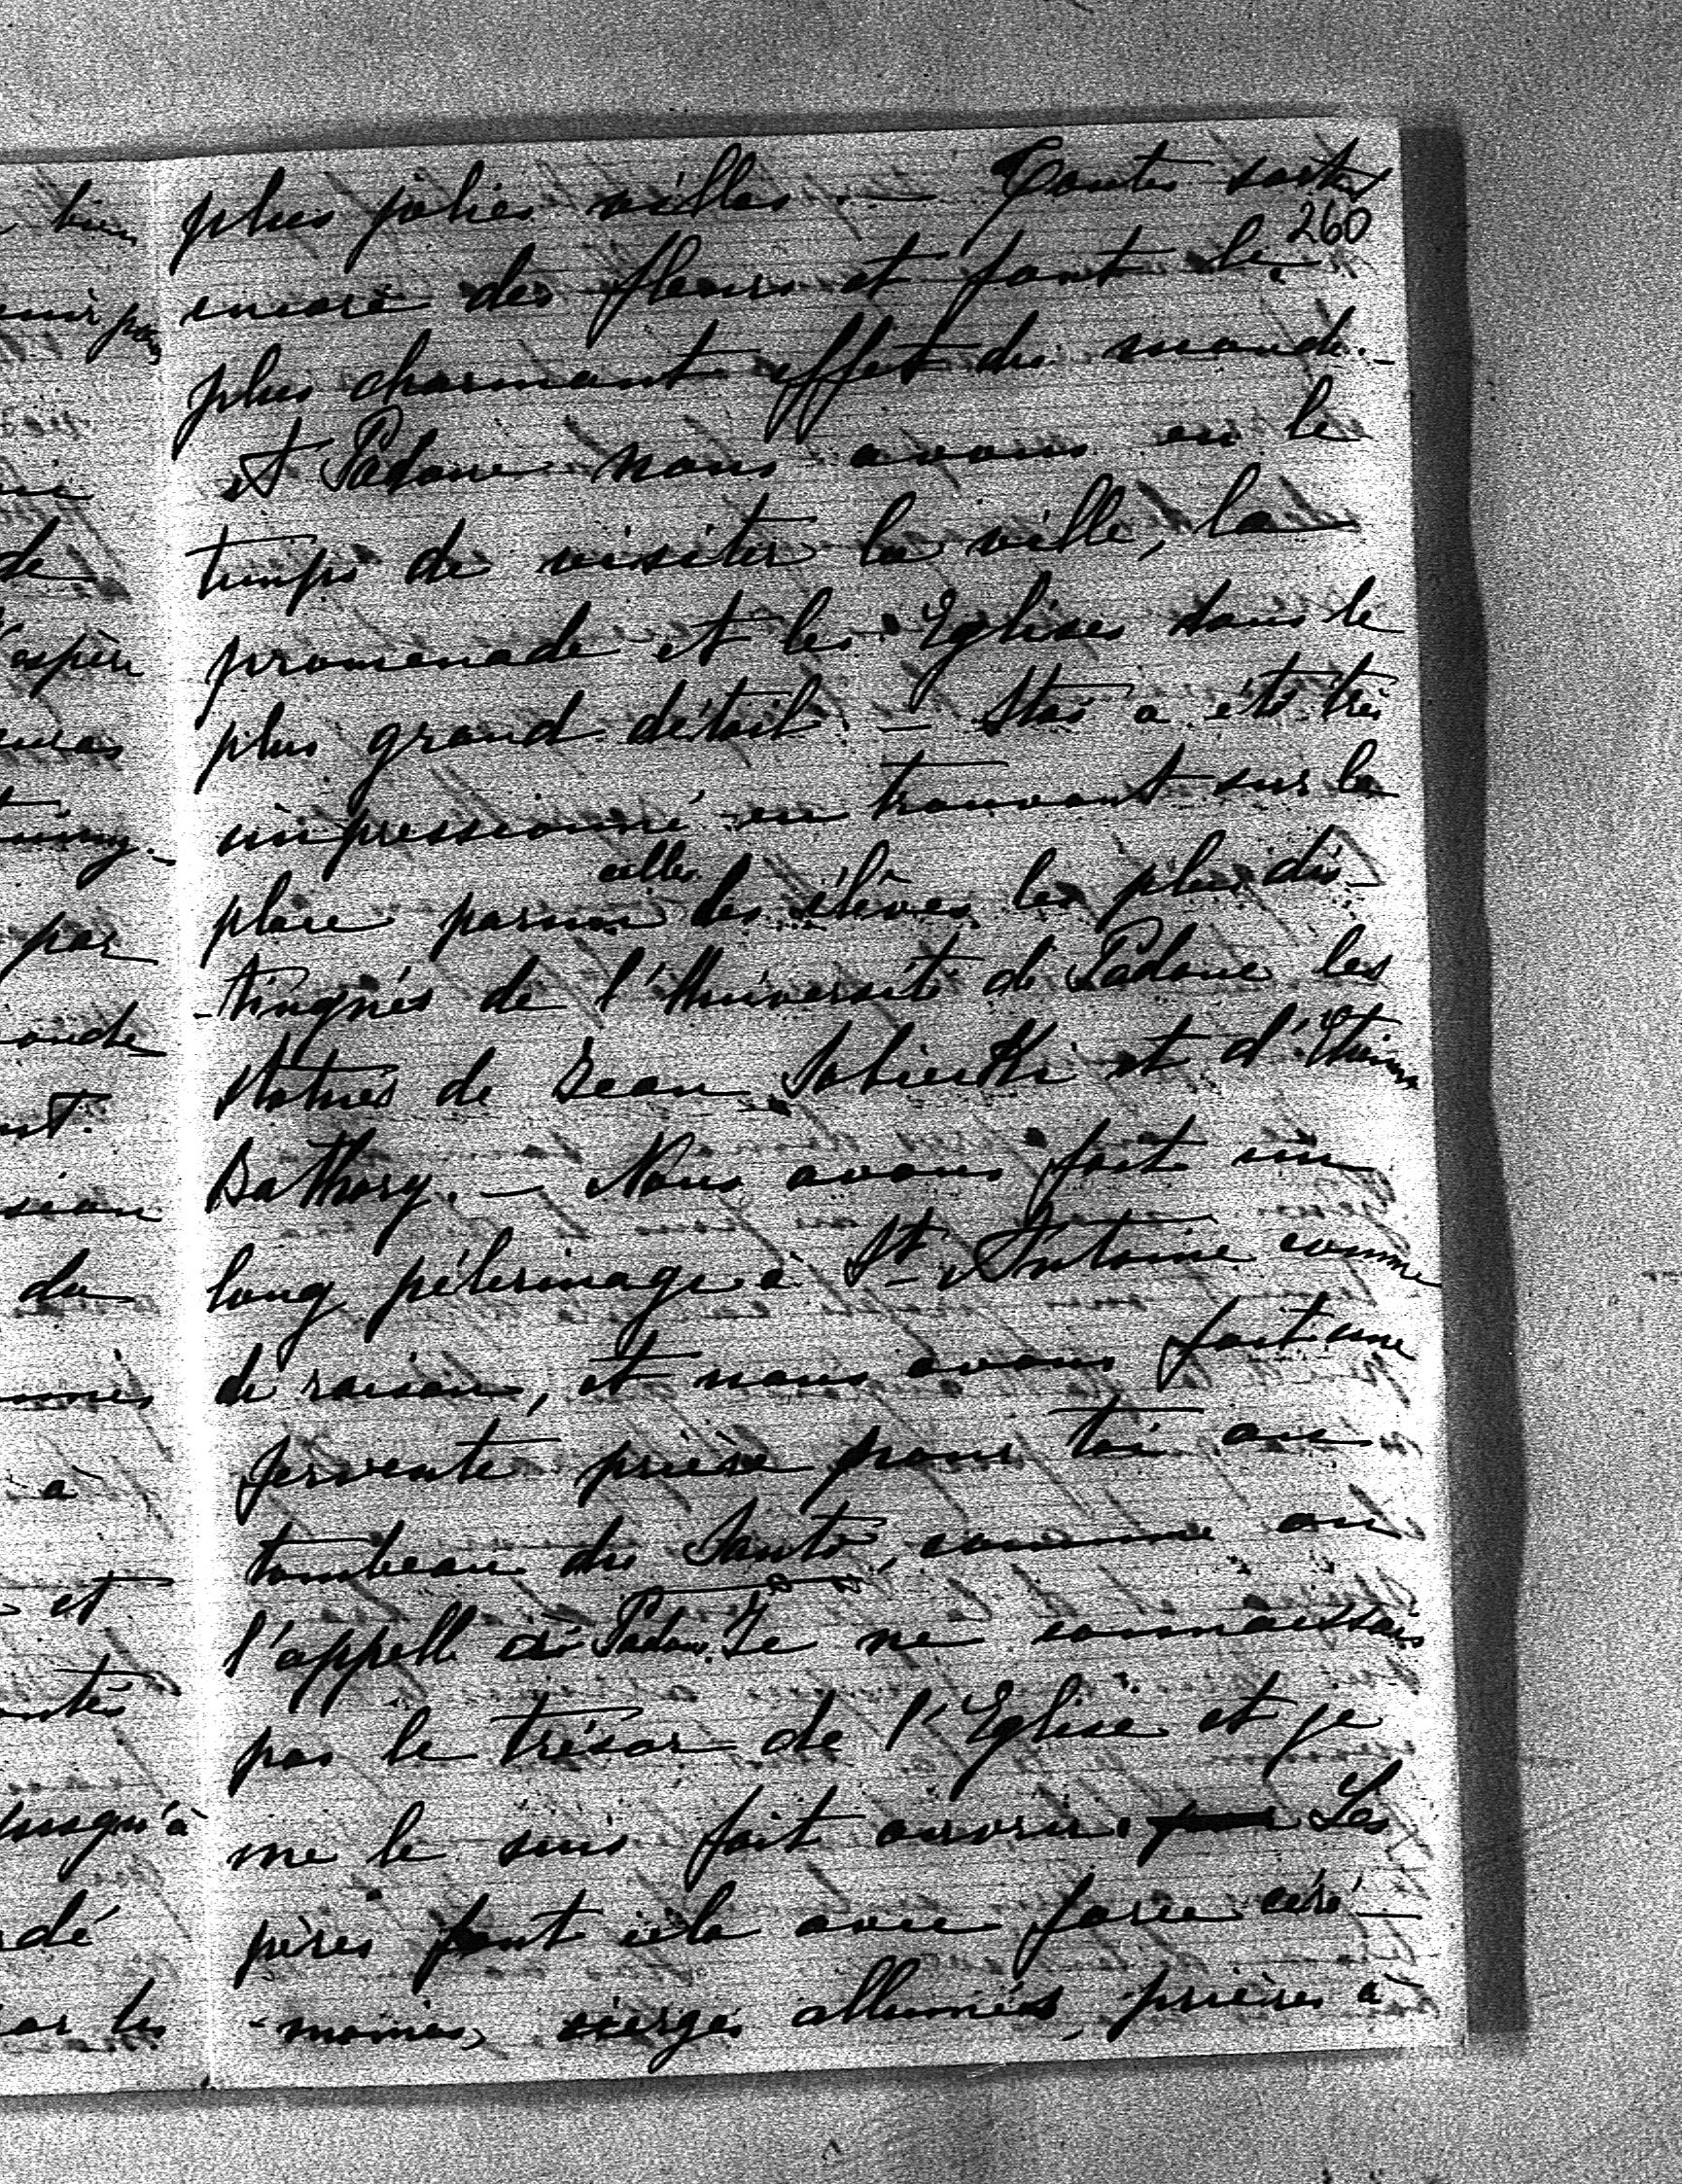 plus jolies villes — Toutes sortes
260
encore des fleurs et font le
plus charmant effet du monde. –
A Padoue nous avons eu le
temps de visiter la ville, la
promenade et les Eglises dans le
plus grand détail – Stas a été très
impressionné en trouvant sur la
place parmi celles des élèves les plus dis-
-tingués de l'Université de Padoue les
statues de Jean Sobieski et d'Etienne
Bathory. – Nous avons fait un
long pélerinage à St Antoine comme
de raison, et nous avons fait une
fervente prière pour toi au
tombeau du Santo, comme on
l'appelle à Padoue. Je ne connaissais
pas le trésor de l'Eglise et je
me le suis fait ouvrir. Les
pères font cela avec force céré-
-monies, cierges allumés, prières à
bien
de
par
et
jusqu'à